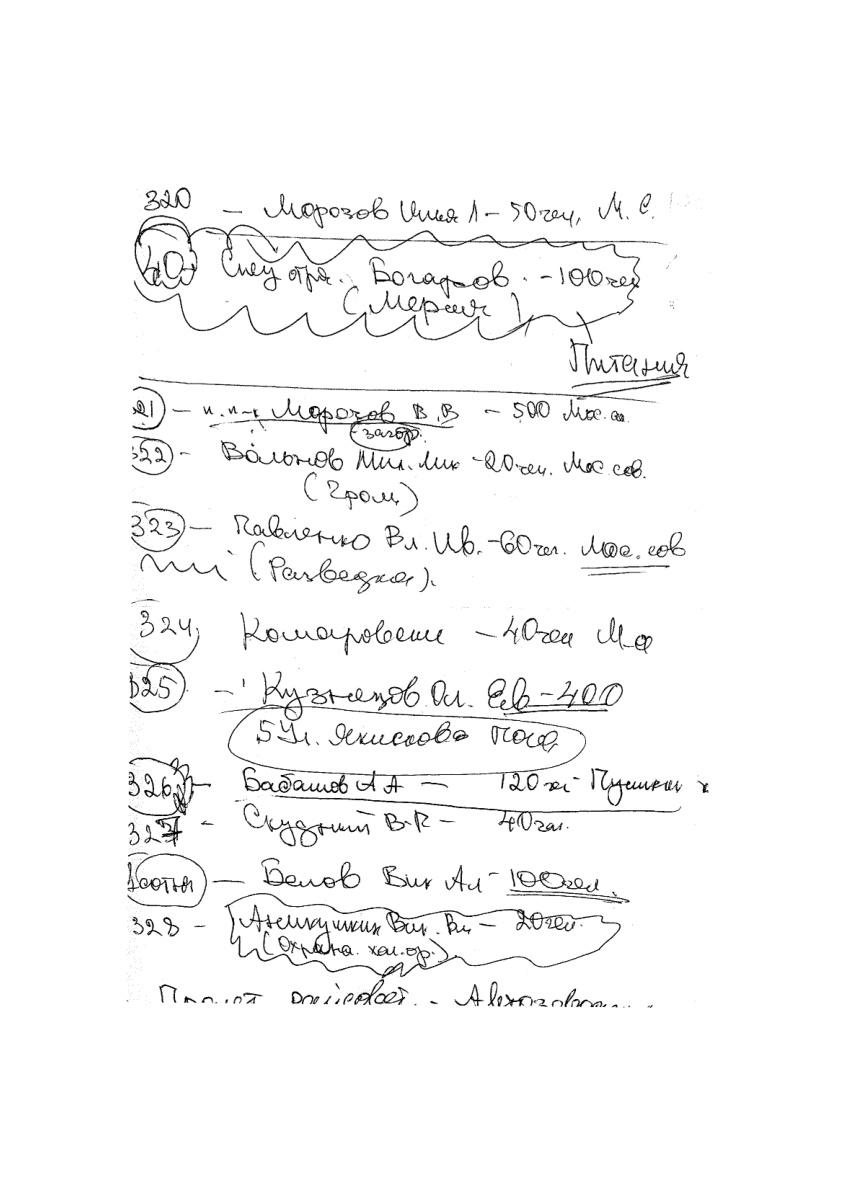 320 – Морозов Илья Л – 50 чел, М. С.
Спец отр. Богаров. – 100 чел
(Мерия)
Питания
321 – п. п-к Морозов В. В – 500 Мос. со
загор.
322 – Вольнов Мих. Мих – 20 чел. Мос сов.
(Гром)
323 – Павленко Вл. Ив. – 60 чел. Мос. сов
(Разведка).
324 Комаровский – 40 чел М-с
325 – Кузнецов Ол. Ев – 400
5 Ул.
326 – Бабашов А А – 120 чел Пушкин
327 – Скудний В. Р – 40 чел.
1 сотня – Белов Вик Ал – 100 чел.
328 – Аникушкин Вик. Вл – 20 чел.
(Охрана. хоз. ор.)